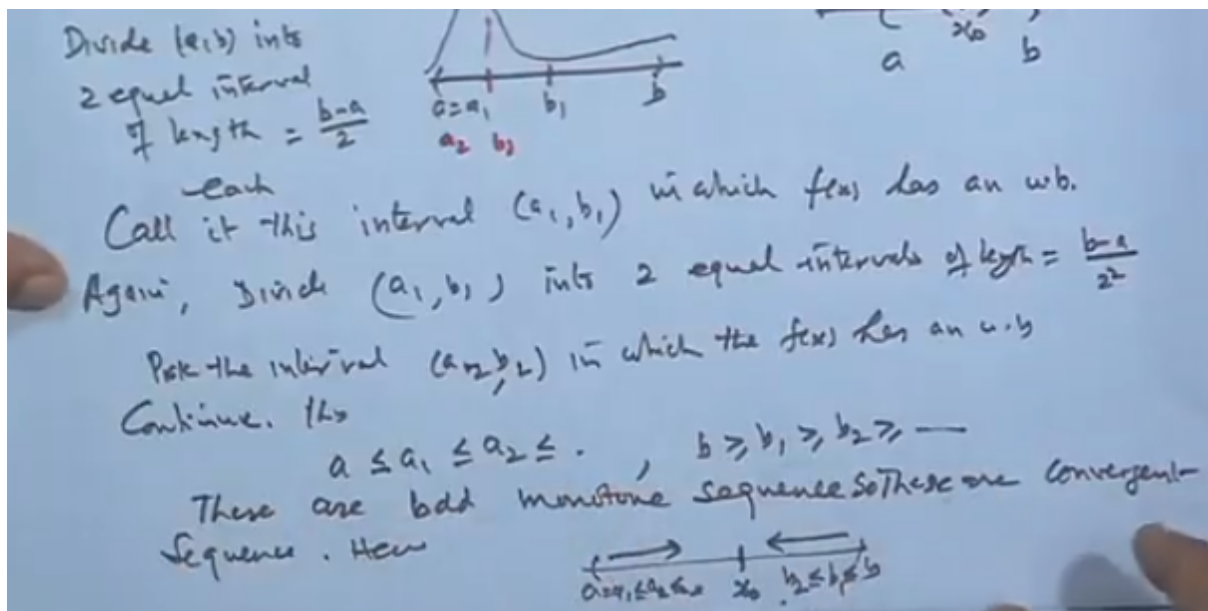 Divide (a,b) into
2 equal interval
of length = \frac{b-a}{2}
each
a=a₁ b₁ b
a₂ b₂
a x₀ b
Call it this interval (a₁,b₁) in which f(x) has an u.b.
Again, Divide (a₁,b₁) into 2 equal intervals of length = \frac{b-a}{2²}
Pick the interval (a₂,b₂) in which the f(x) has an u.b
Continue. this
a ≤ a₁ ≤ a₂ ≤ . , b ≥ b₁ ≥ b₂ ≥ —
These are bdd monotone sequence So These are convergent
Sequence.
a=a₁≤a₂≤ x₀ b₂≤b₁≤b